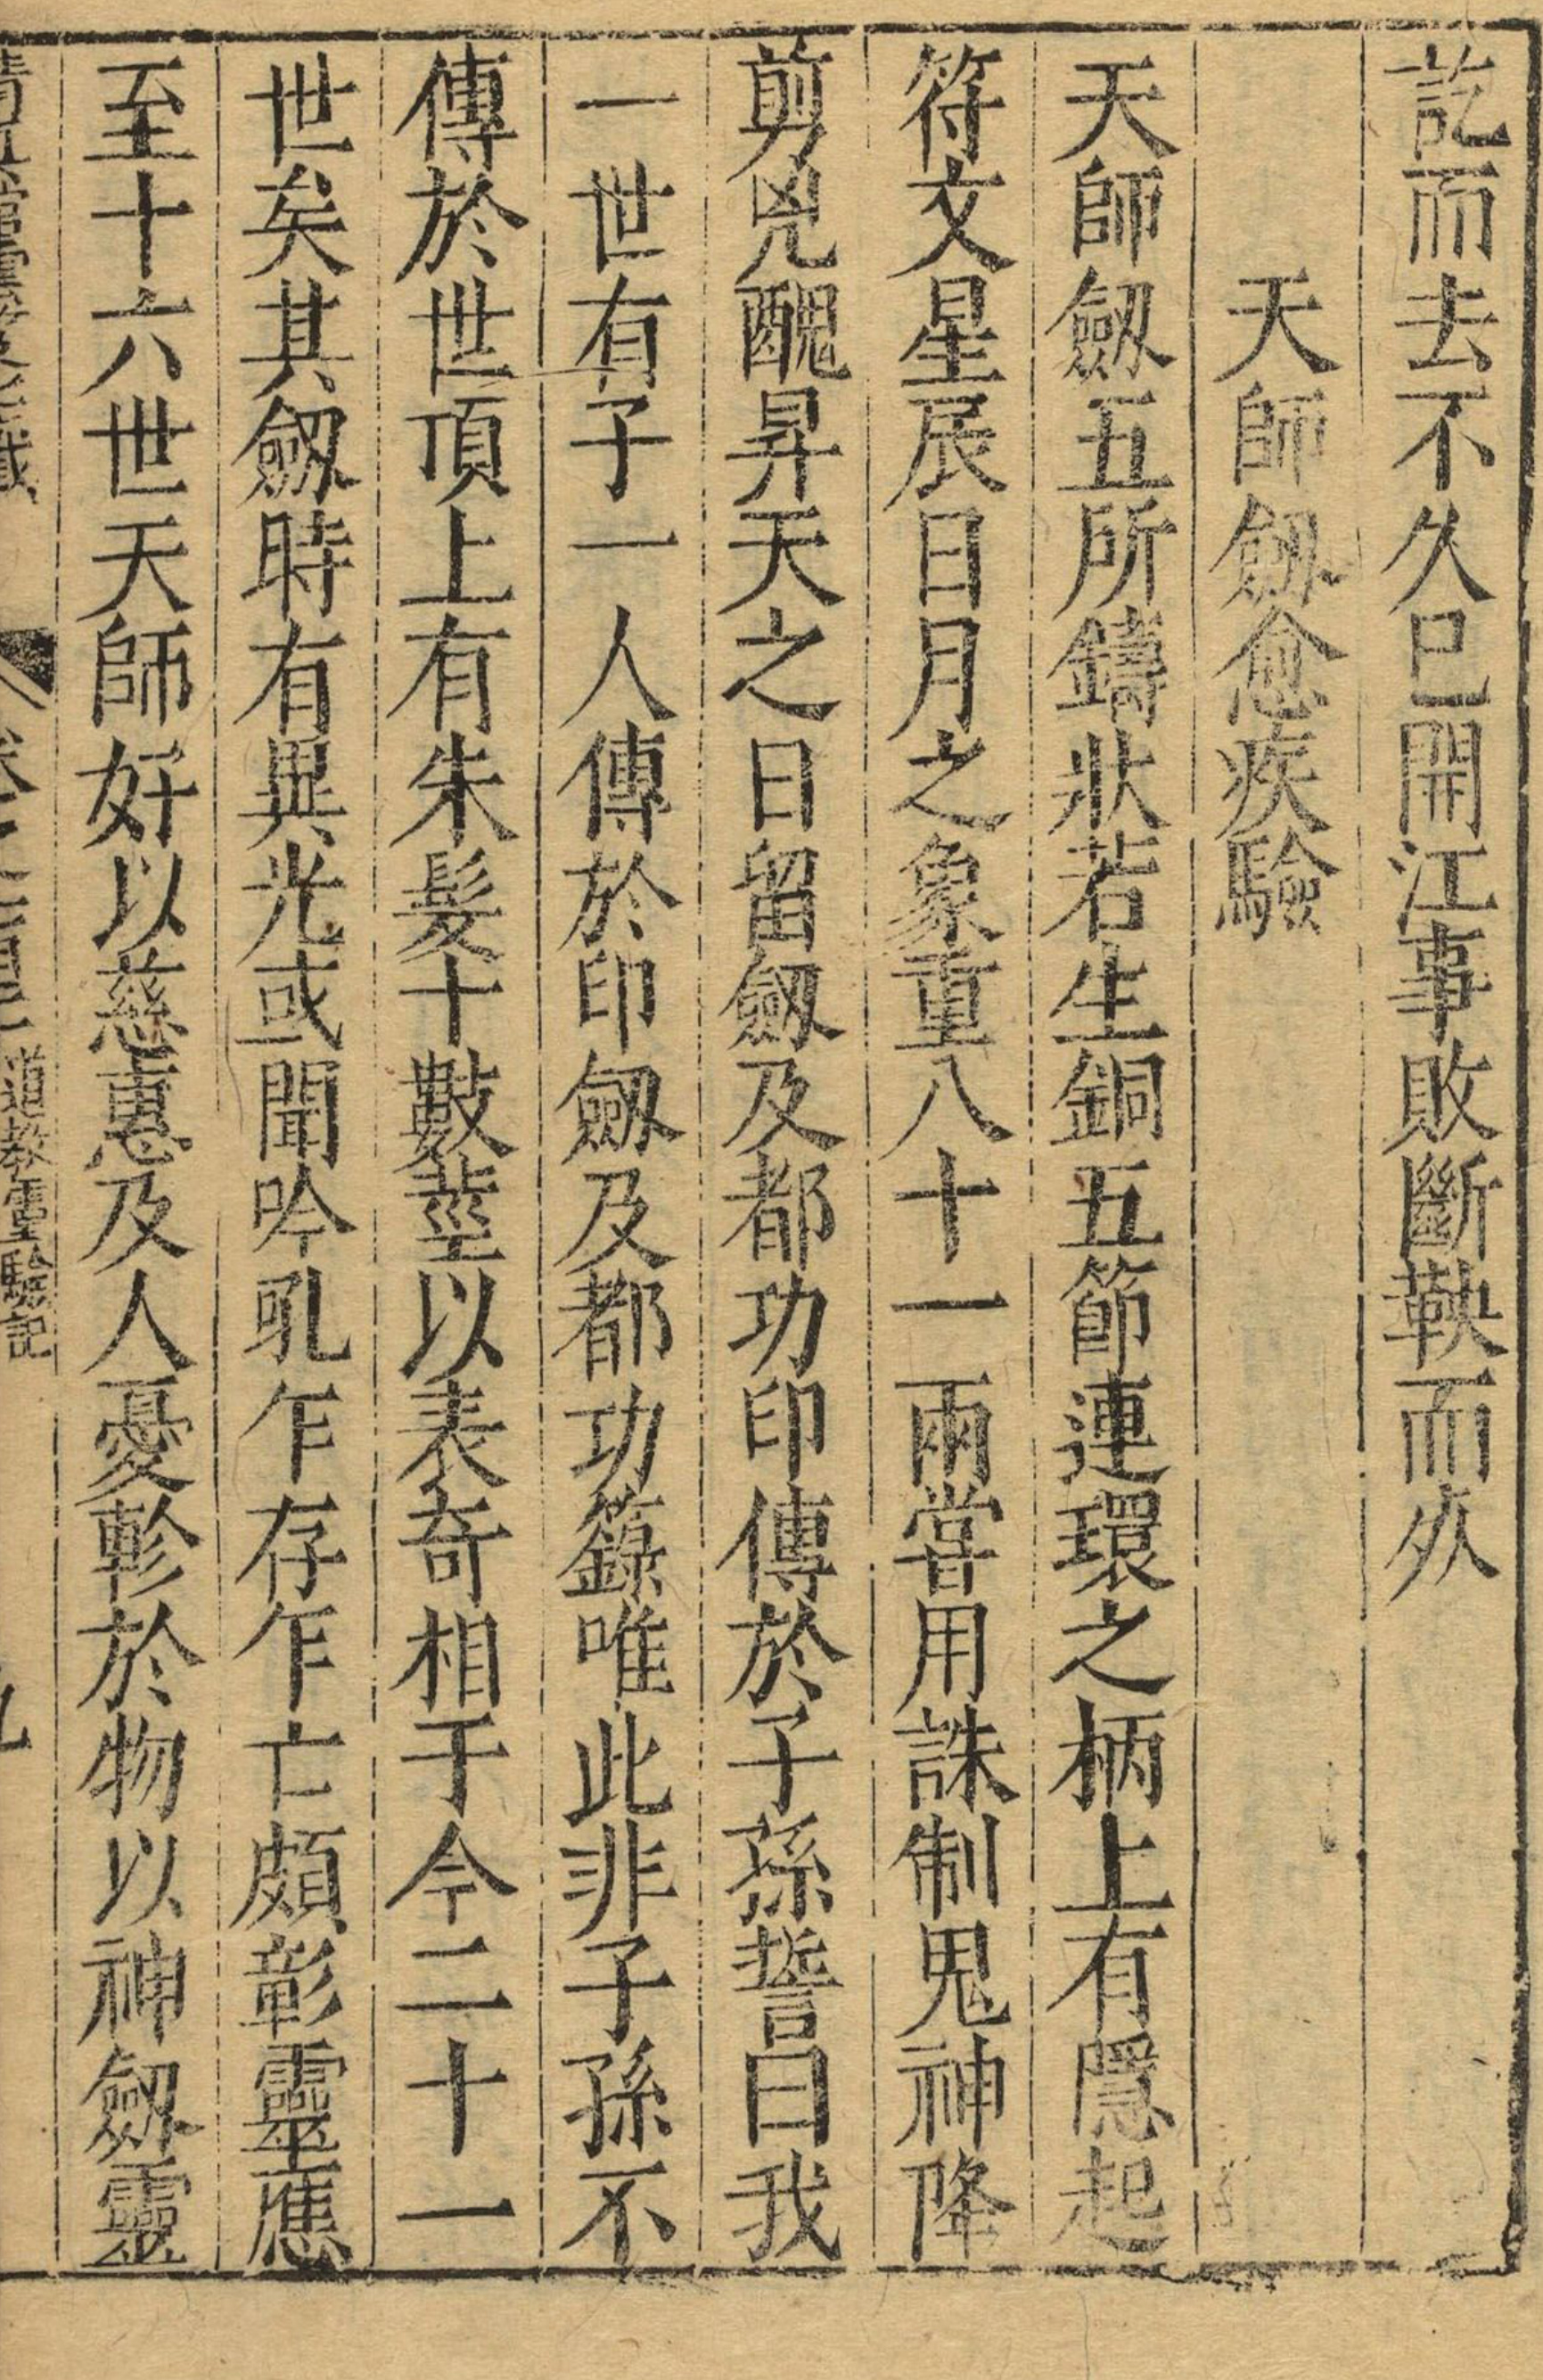 訖而去不久已開江事敗斷鞅而夾
天師劔愈疾驗
天師劔五所鑄狀若生銅五節連環之柄上有隱起
符文星辰日月之象重八十一兩甞用誅制鬼神降
剪兇醜昇天之日留劔及都功印傳於子孫誓曰我
一世有子一人傳於印劔及都功籙唯此非子孫不
傳於世頂上有朱髮十數莖以表奇相于今二十一
世矣其劔時有異光或聞吟吼乍存乍亡頗彰靈應
至十六世天師好以慈惠及人憂軫於物以神劔靈
道教靈驗記